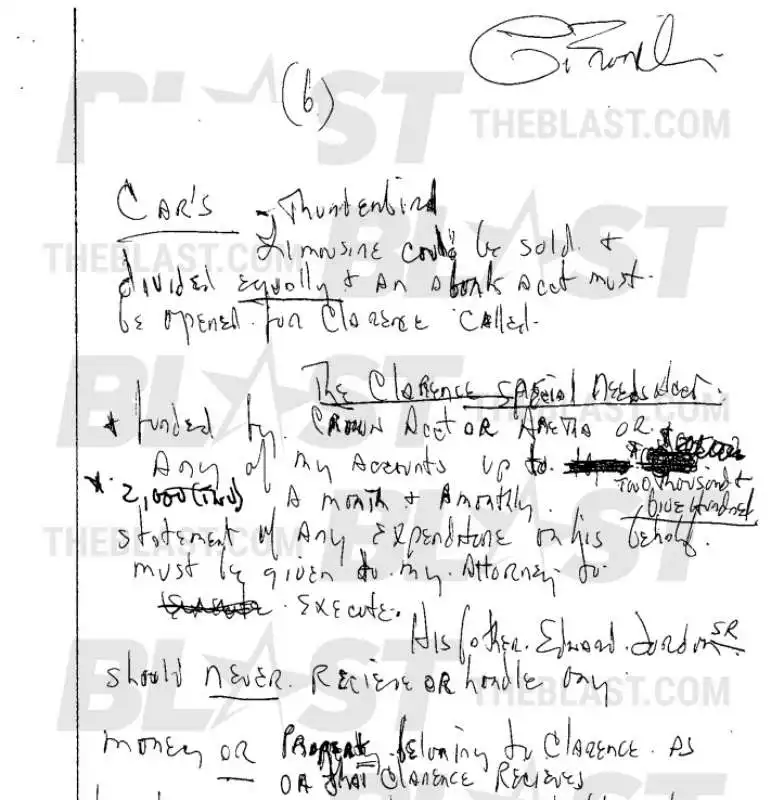 (6)
CAR'S - Thunterbird
Limousine could be sold. &
divided equally & An A bank Acct must.
be opened. for Clarence Called.
The Clarence special needs Acct.
* funded by. CROWN Acct OR ARETHA OR.
Any of my Accounts up to.
* 2,000 (two) A month & A monthly.
Two thousand &
five hundred
statement of Any Expenditure on his behalf.
must be given to. my. Attorney to.
Execute.
His father. Edward. Jordon SR
should never. Recieve OR handle any
money OR Property. beloning to Clarence. AS
OR that Clarence Recieves
BLAST
THEBLAST.COM